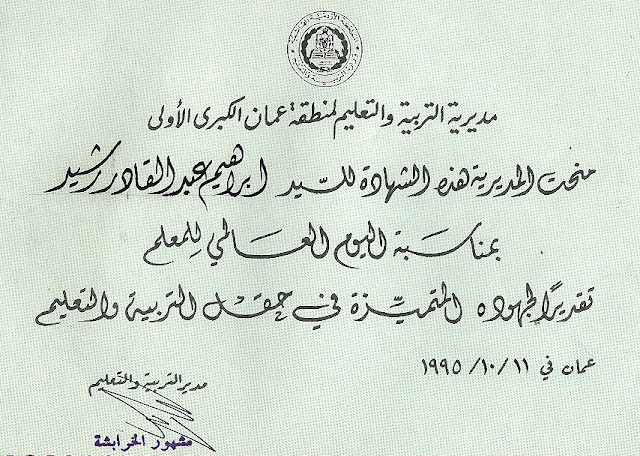 مديرية التربية والتعليم لمنطقة عمان الكبرى الأولى
منحت المديرية هذه الشهادة للسّيد ابراهيم عبد القادر رشيد
بمناسبة اليوم العالمي للمعلم
تقديرًا لجهوده المتميّزة في حقل التربية والتعليم
عمان في ١١/ ١٠/ ١٩٩٥
مدير التربية والتعليم
مشهور الخرابشة